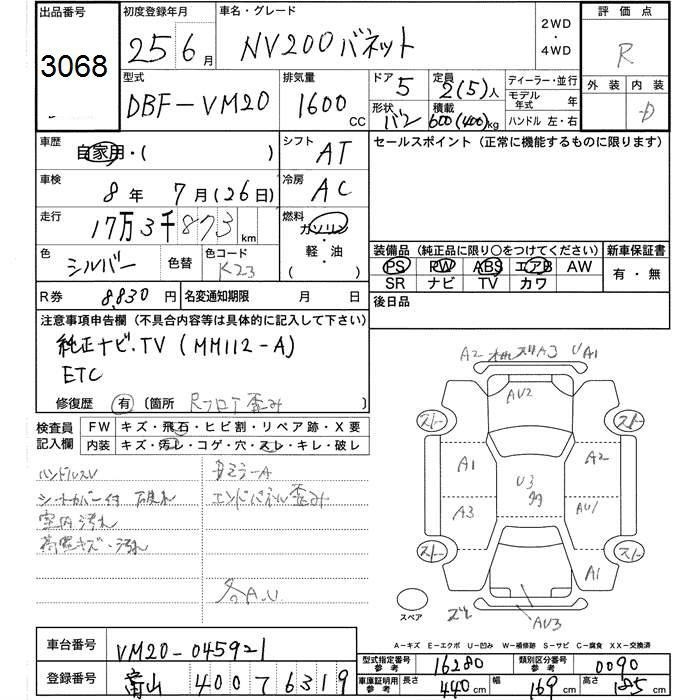 出品番号
3068
初度登録年月
25 6月
車名・グレード
NV200バネット
2WD
・
4WD
評価点
R
外装 内装
D
型式
DBF-VM20
排気量
1600 CC
ドア
5
形状
バン
定員
2(5)人
積載
600(400)kg
ディーラー・並行
モデル年式 年
ハンドル 左・右
車歴
自家用・( )
シフト
AT
車検
8年 7月(26日)
冷房
AC
走行
17万3千873km
燃料
ガソリン
軽・油
( )
色
シルバー
色替
色コード
K23
R券 8,830円
名変通知期限 月 日
セールスポイント(正常に機能するものに限ります)
装備品(純正品に限り○をつけてください)
新車保証書
PS PW ABS エアB AW
SR ナビ TV カワ
有・無
後日品
注意事項申告欄(不具合内容等は具体的に記入して下さい)
純正ナビ.TV(MM112-A)
ETC
修復歴 有 〔箇所 Rフロア歪み 〕
検査員記入欄
FW キズ・飛石・ヒビ割・リペア跡・X要
内装 キズ・汚レ・コゲ・穴・スレ・キレ・破レ
ハンドルスレ
シートカバー付 破れ
室内汚れ
荷室キズ・汚れ
エンドパネル歪み
各A.U
A2 A3 U A1
AU2
スト スト
A1 U3 A2
A3 AU1
スト スト
A1
スペア
AU3
A-キズ E-エクボ U-凹み W-補修跡 S-サビ C-腐食 XX-交換済
車台番号
VM20-045921
登録番号
富山 400 す 6319
型式指定番号 参考
16280
類別区分番号 参考
0090
車庫証明用 参考
長さ 440cm
幅 169cm
高さ 185cm